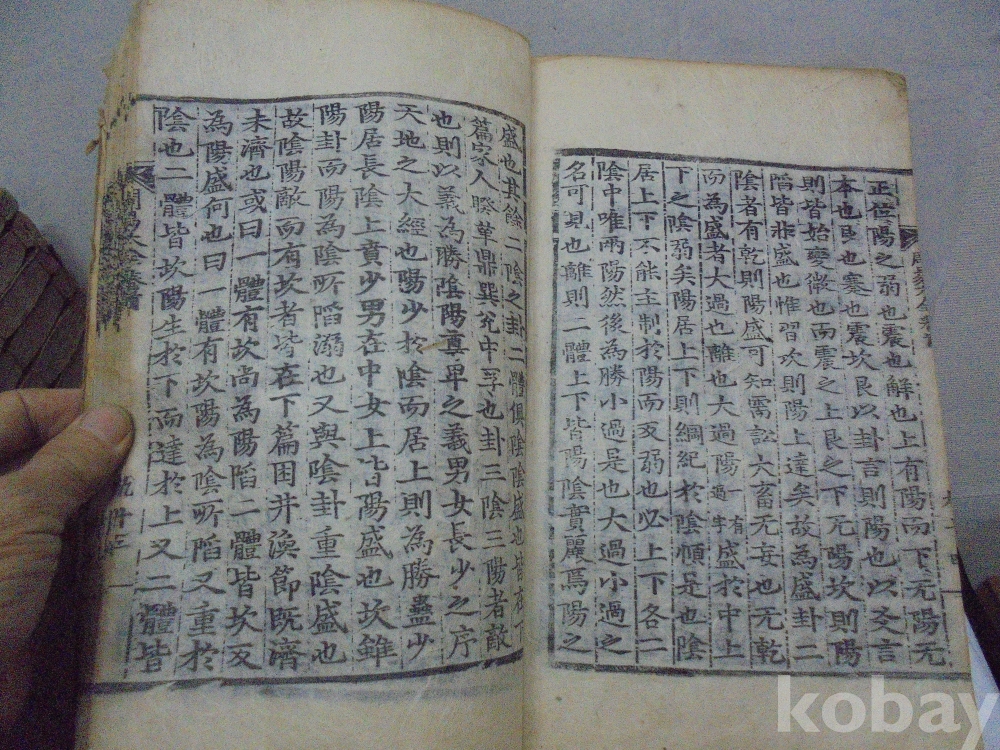 正位陽之弱也震也解也上有陽而下无陽无
本也艮也蹇也震坎艮以卦言則陽也以爻言
則皆始變微也而震之上艮之下无陽坎則陽
陷皆非盛也惟習坎則陽上達矣故為盛卦二
陰者有乾則陽盛可知需訟大畜无妄也无乾
而為盛者大過也離也大過陽一有過字盛於中上
下之陰弱矣陽居上下則綱紀於陰頤是也陰
居上下不能主制於陽而反弱也必上下各二
陰中唯兩陽然後為勝小過是也大過小過之
名可見也離則二體上下皆陽陰實麗焉陽之
盛也其餘二陰之卦二體俱陰陰盛也皆在下
篇家人睽革鼎巽兌中孚也卦三陰三陽者敵
也則以義為勝陰陽尊卑之義男女長少之序
天地之大經也陽少於陰而居上則為勝蠱少
陽居長陰上賁少男在中女上皆陽盛也坎雖
陽卦而陽為陰所陷溺也又與陰卦重陰盛也
故陰陽敵而有坎者皆在下篇困井渙節既濟
未濟也或曰一體有坎尚為陽陷二體皆坎反
為陽盛何也曰一體有坎陽為陰所陷又重於
陰也二體皆坎陽生於下而達於上又二體皆
kobay